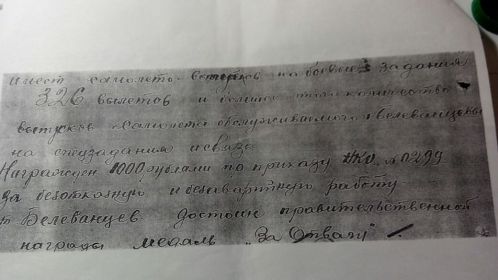 имеет самолето-вылетов на боевые задания
326 вылетов и больше
выпусков самолета обслуживаемого т. Белеванцевы
на спецзадания и связь
Награжден 1000 рублями по приказу НКО № 0299
за безотказную и безаварийную работу
т. Белеванцев достоин правительственной
награды медаль "За Отвагу"